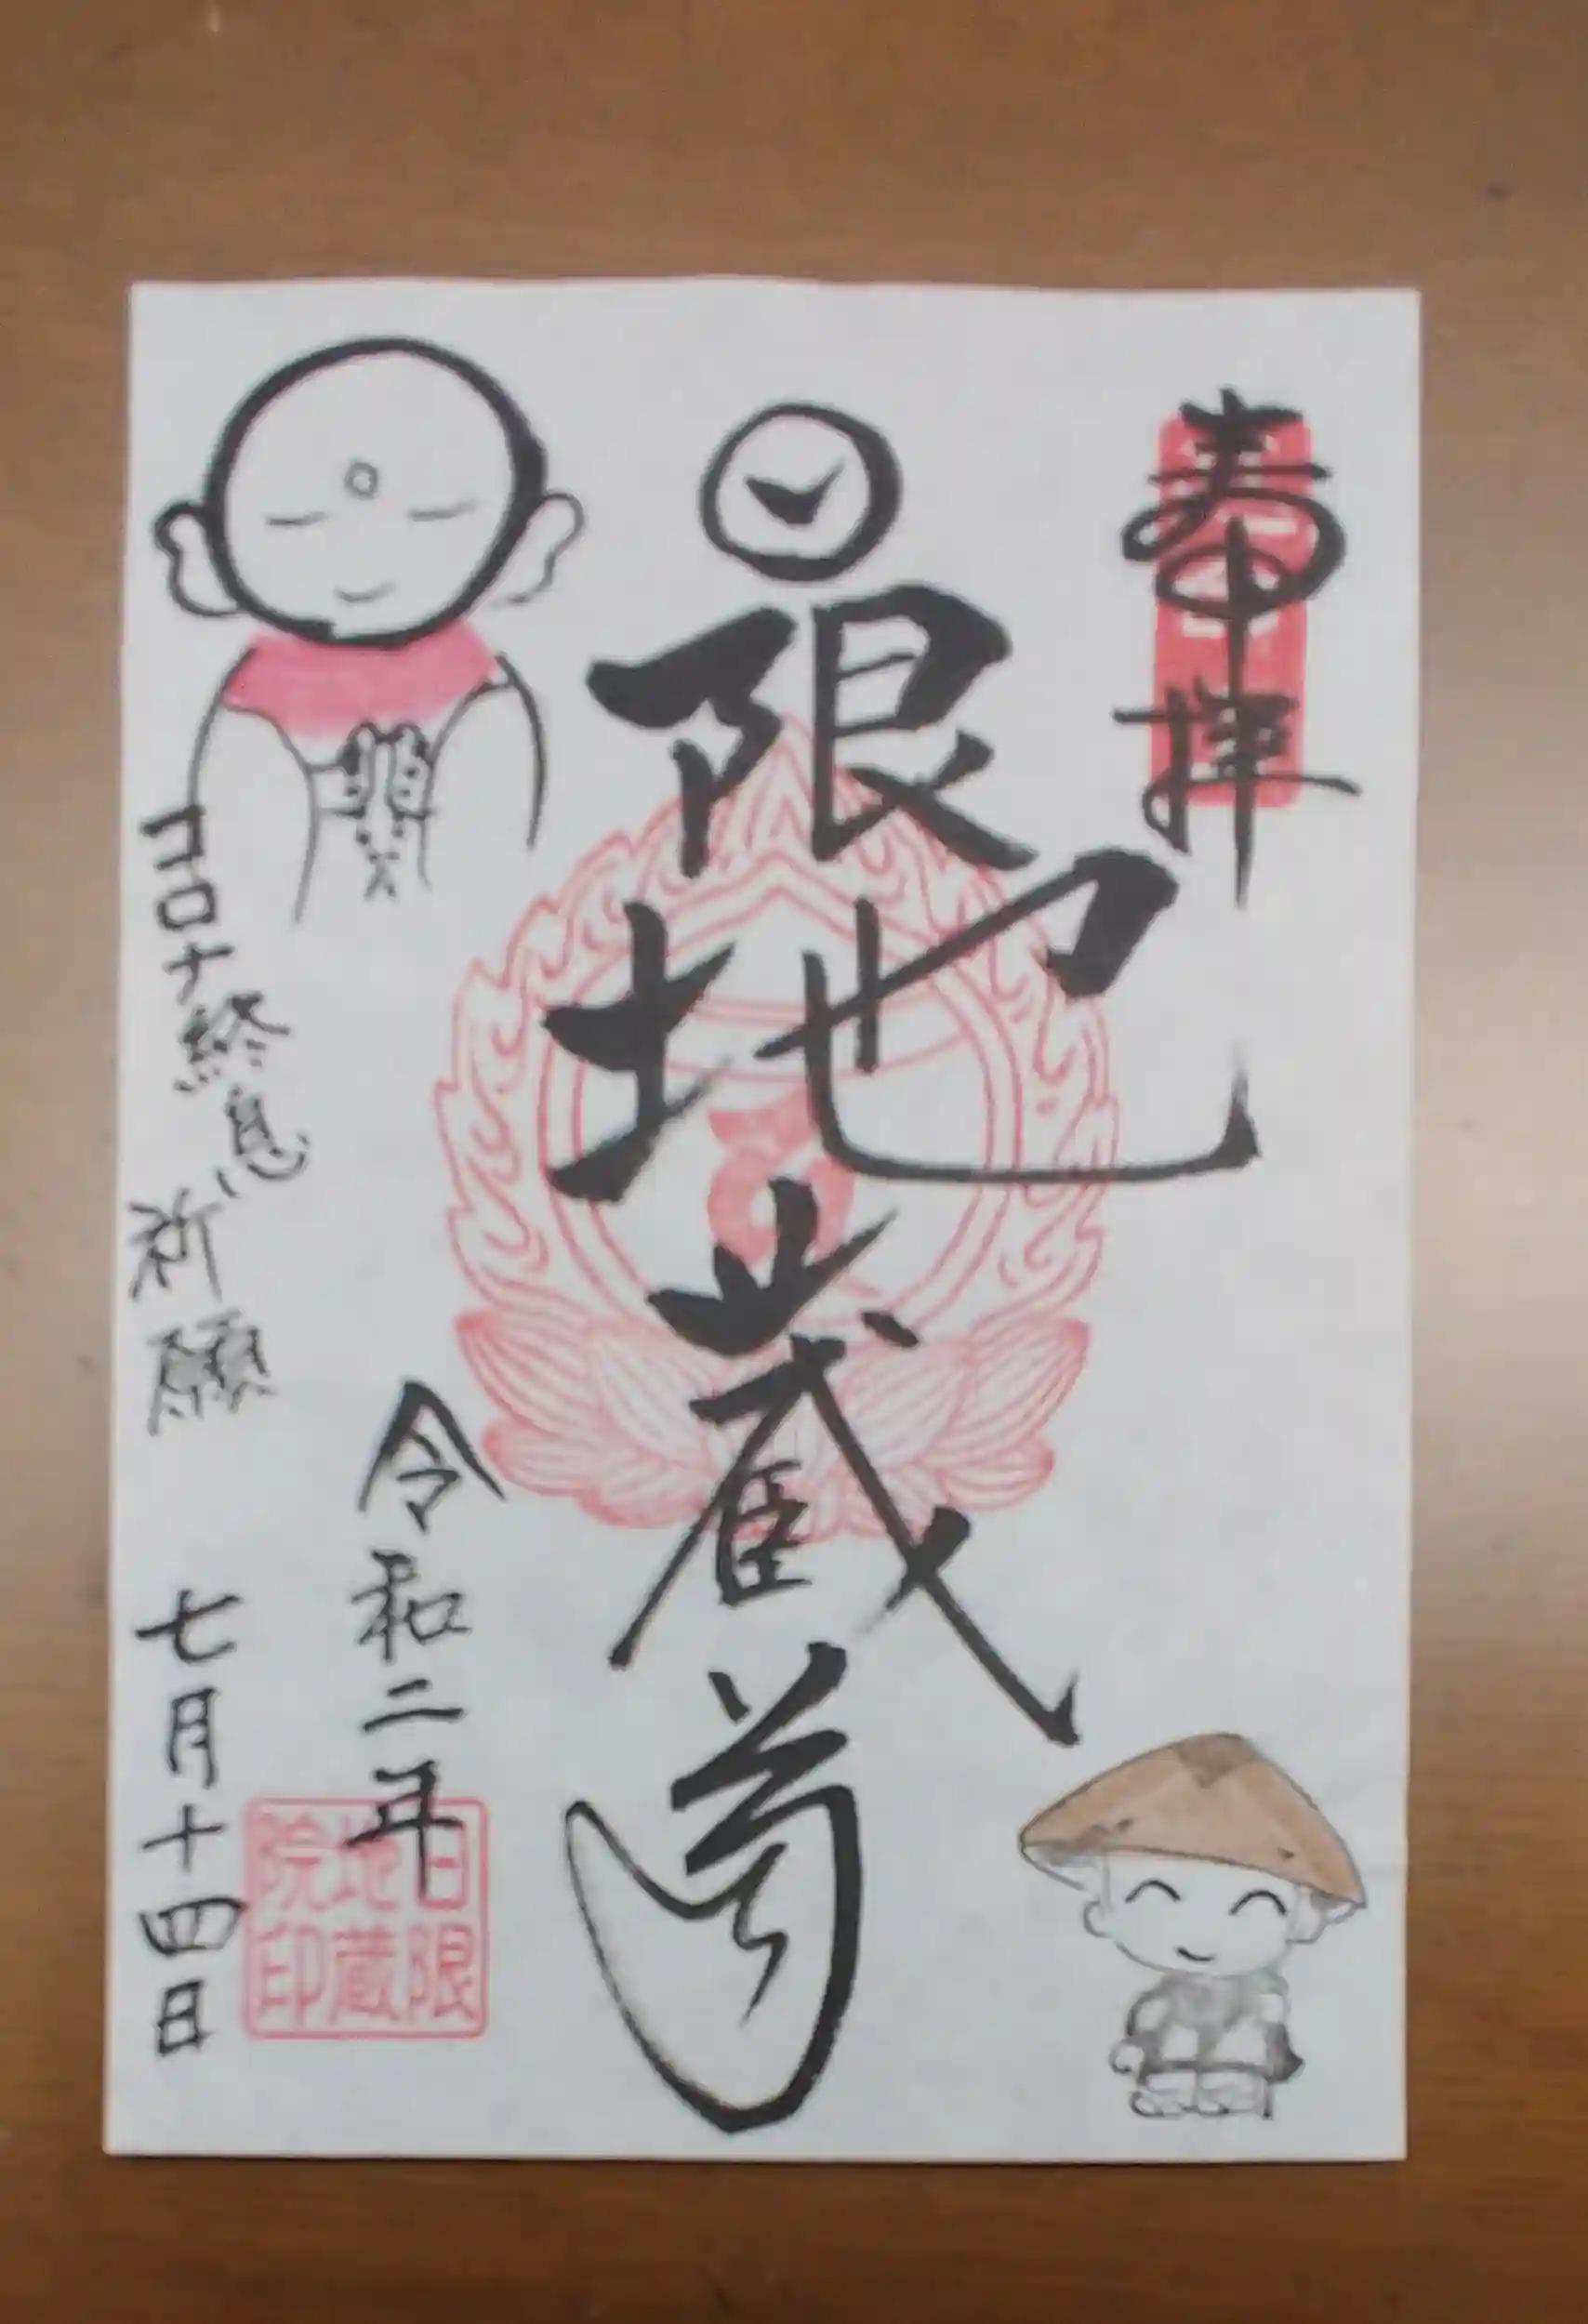 奉拝
日限地蔵尊
コロナ終息祈願
令和二年
七月十四日
日限
地蔵
院印